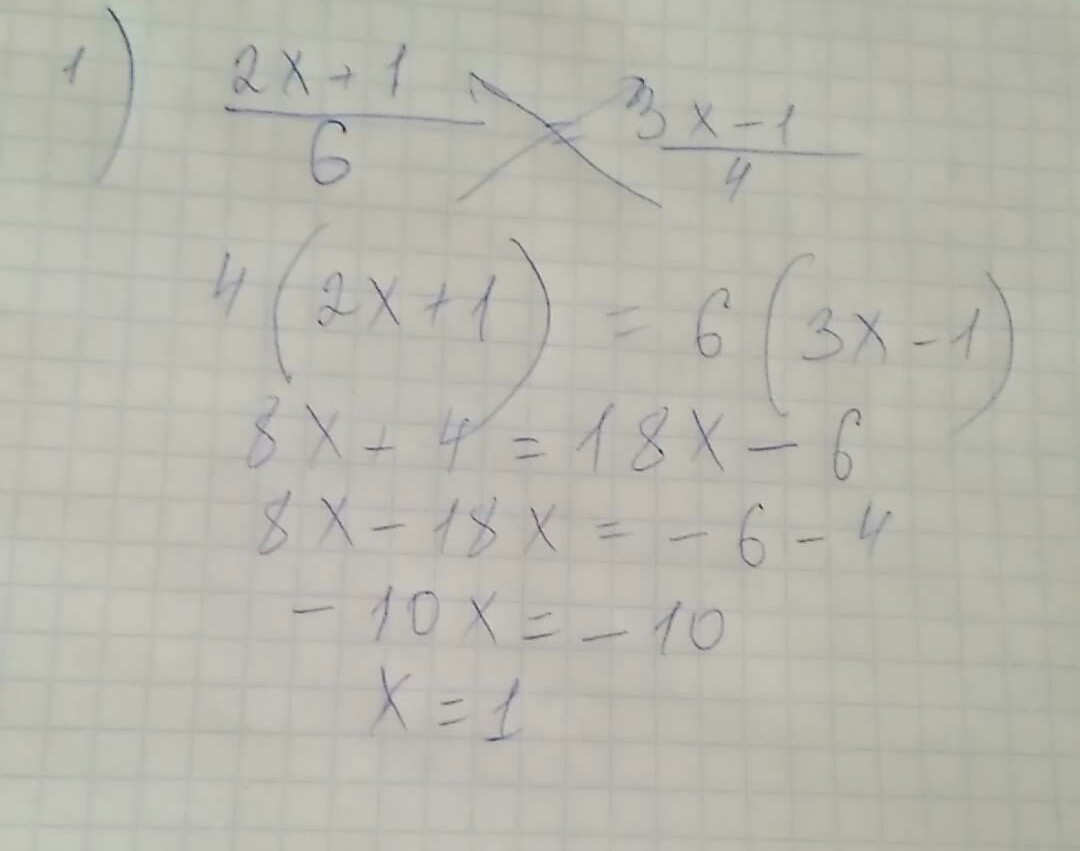 1) (2x+1)/6 = (3x-1)/4
4(2x+1) = 6(3x-1)
8x+4 = 18x-6
8x-18x = -6-4
-10x = -10
x = 1